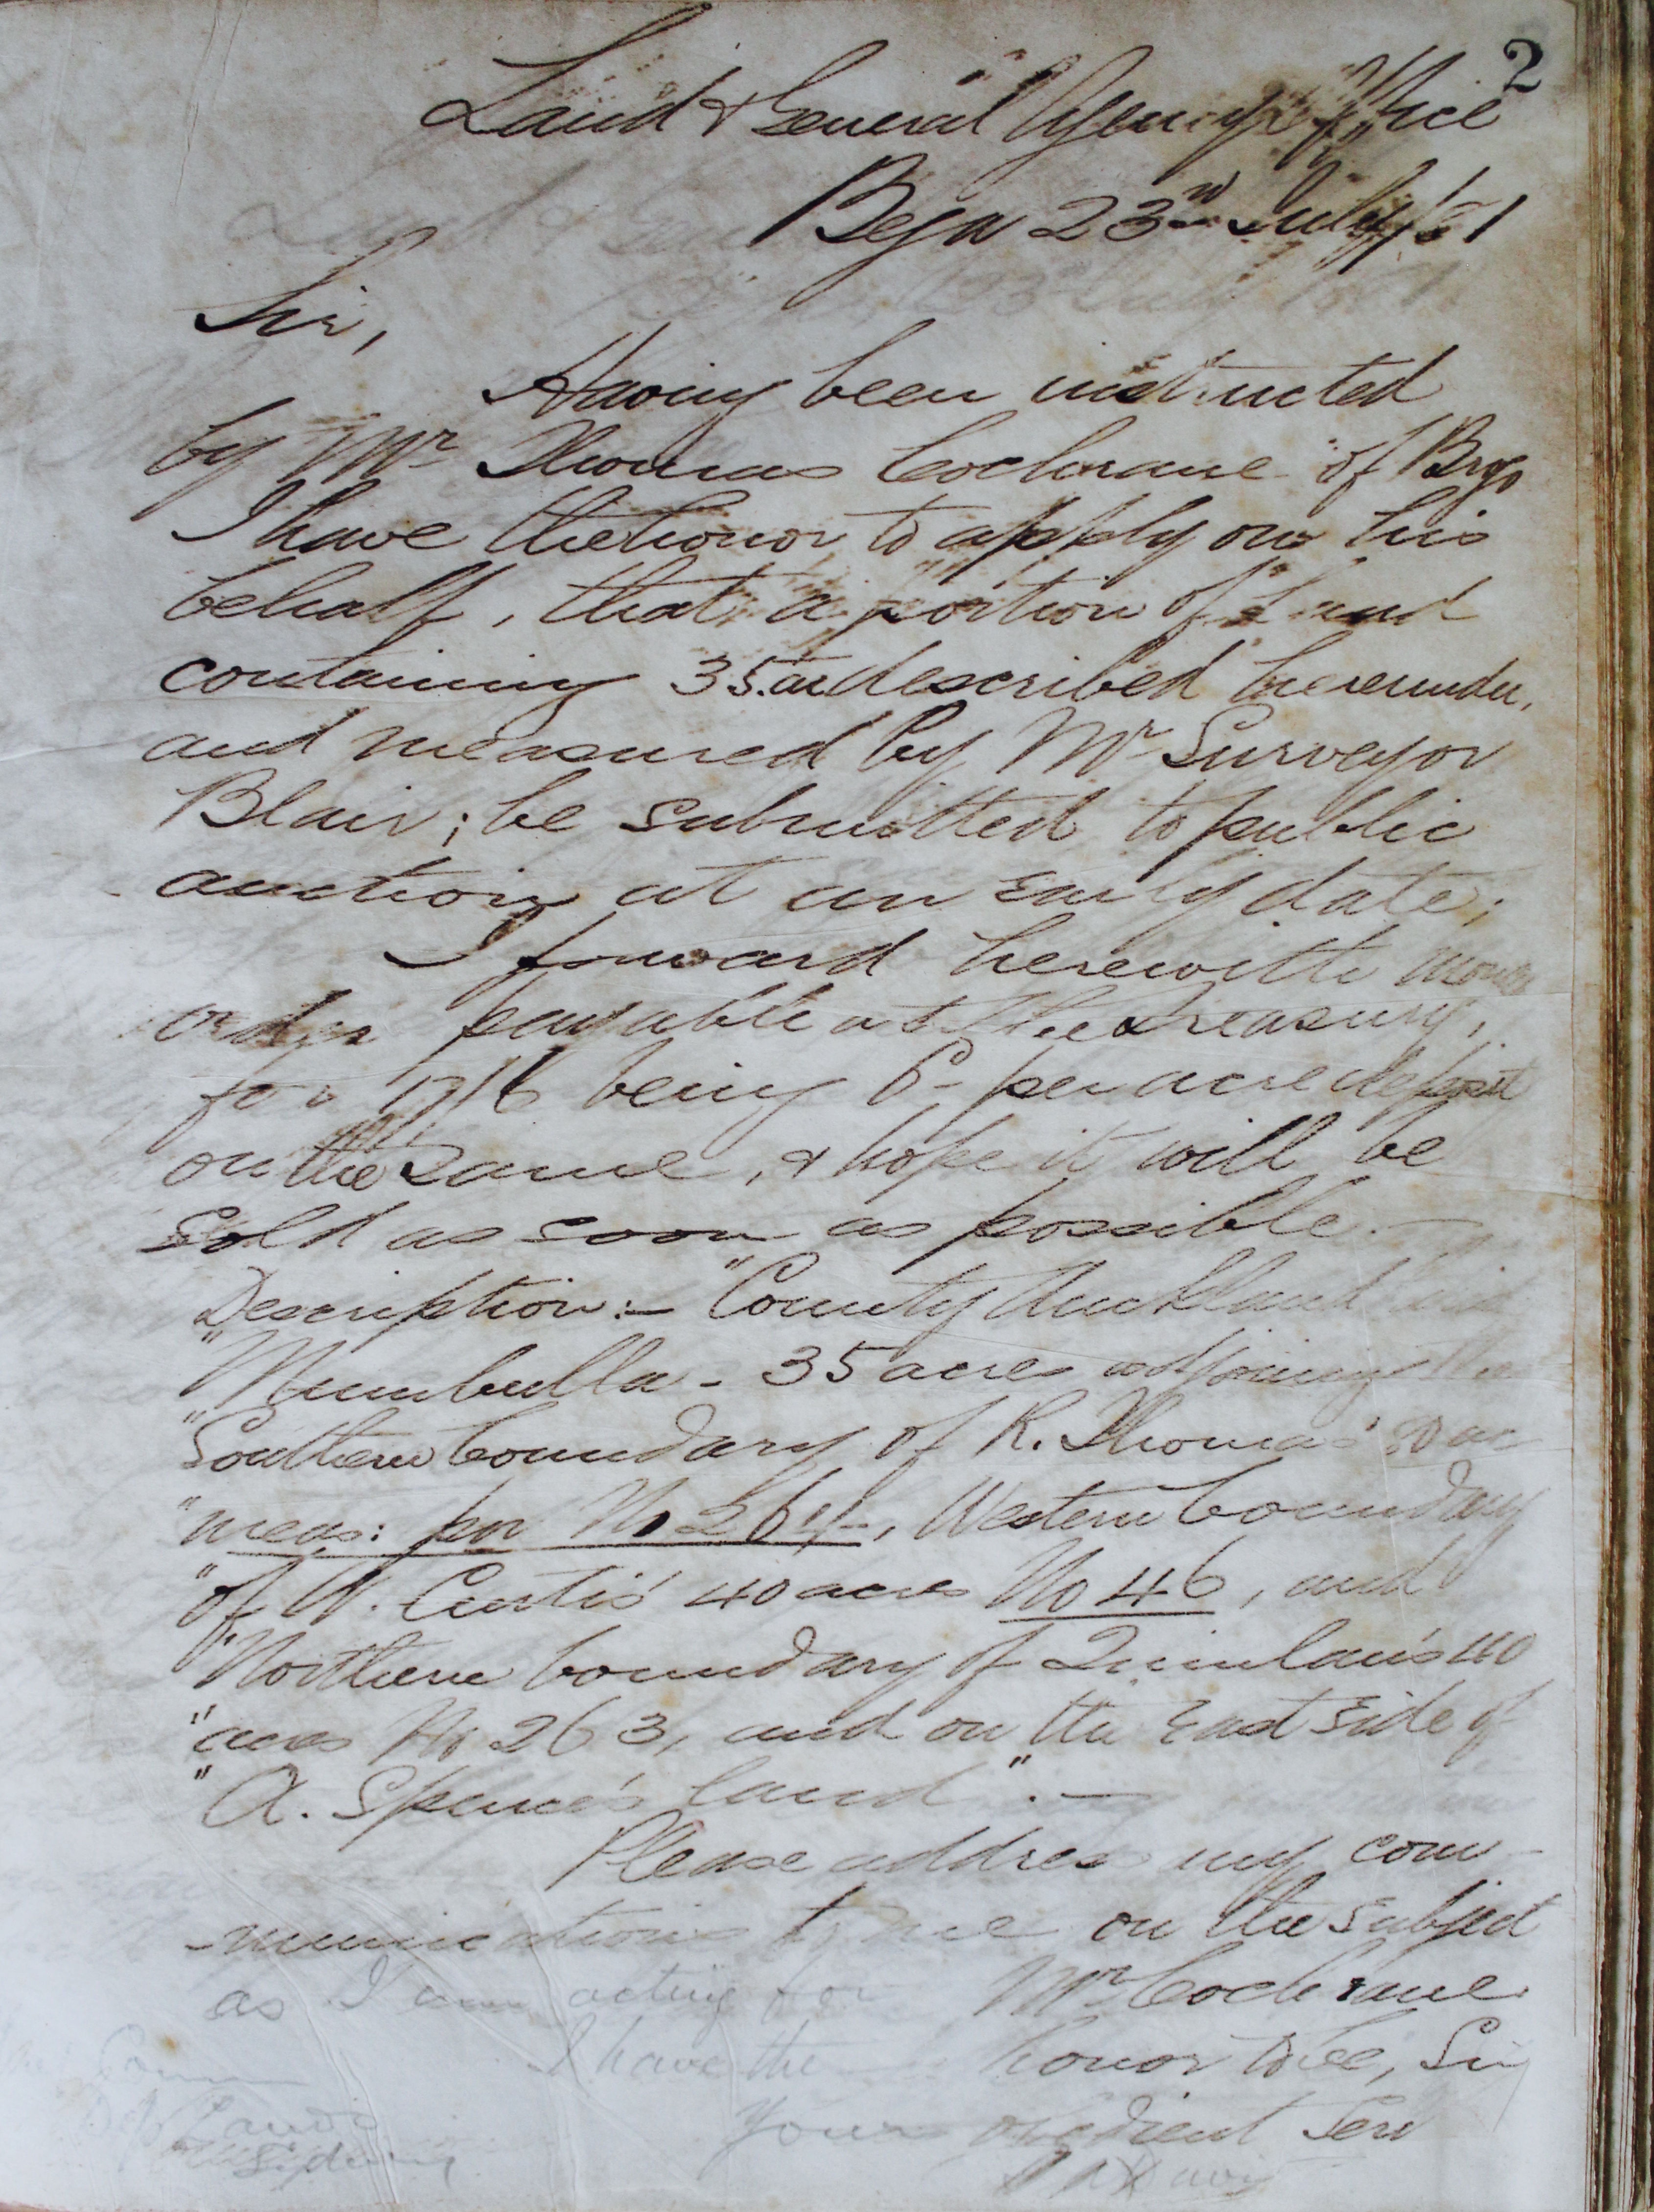 2
Land & General Agency Office
Bega 23rd July
Sir,
Having been instructed
by Mr Thomas Cochrane of Brogo
I have the honor to apply on his
behalf, that a portion of land
containing 35.ac described hereunder,
and measured by Mr Surveyor
Blair; be submitted to public
auction at an Early date;
I forward herewith money
order payable at the Treasury,
for 17/6 being 6d per acre deposit
on the same, & hope it will be
sold as soon as possible.—
Description:— "County Auckland
"Mumbulla - 35 acres adjoining the
"Southern boundary of R. Thomas' ac
"meas: por No 264, Western boundary
"of W. Curtis' 40 acres No 46, and
"Northern boundary of Quinlan's 40
"acres No 263, and on the East side of
"A. Spence's land".—
Please address any com-
-munications to me on the subject
as I am acting for Mr Cochrane
I have the honor to be, Sir
Your obedient Serv
Lands
Sydney